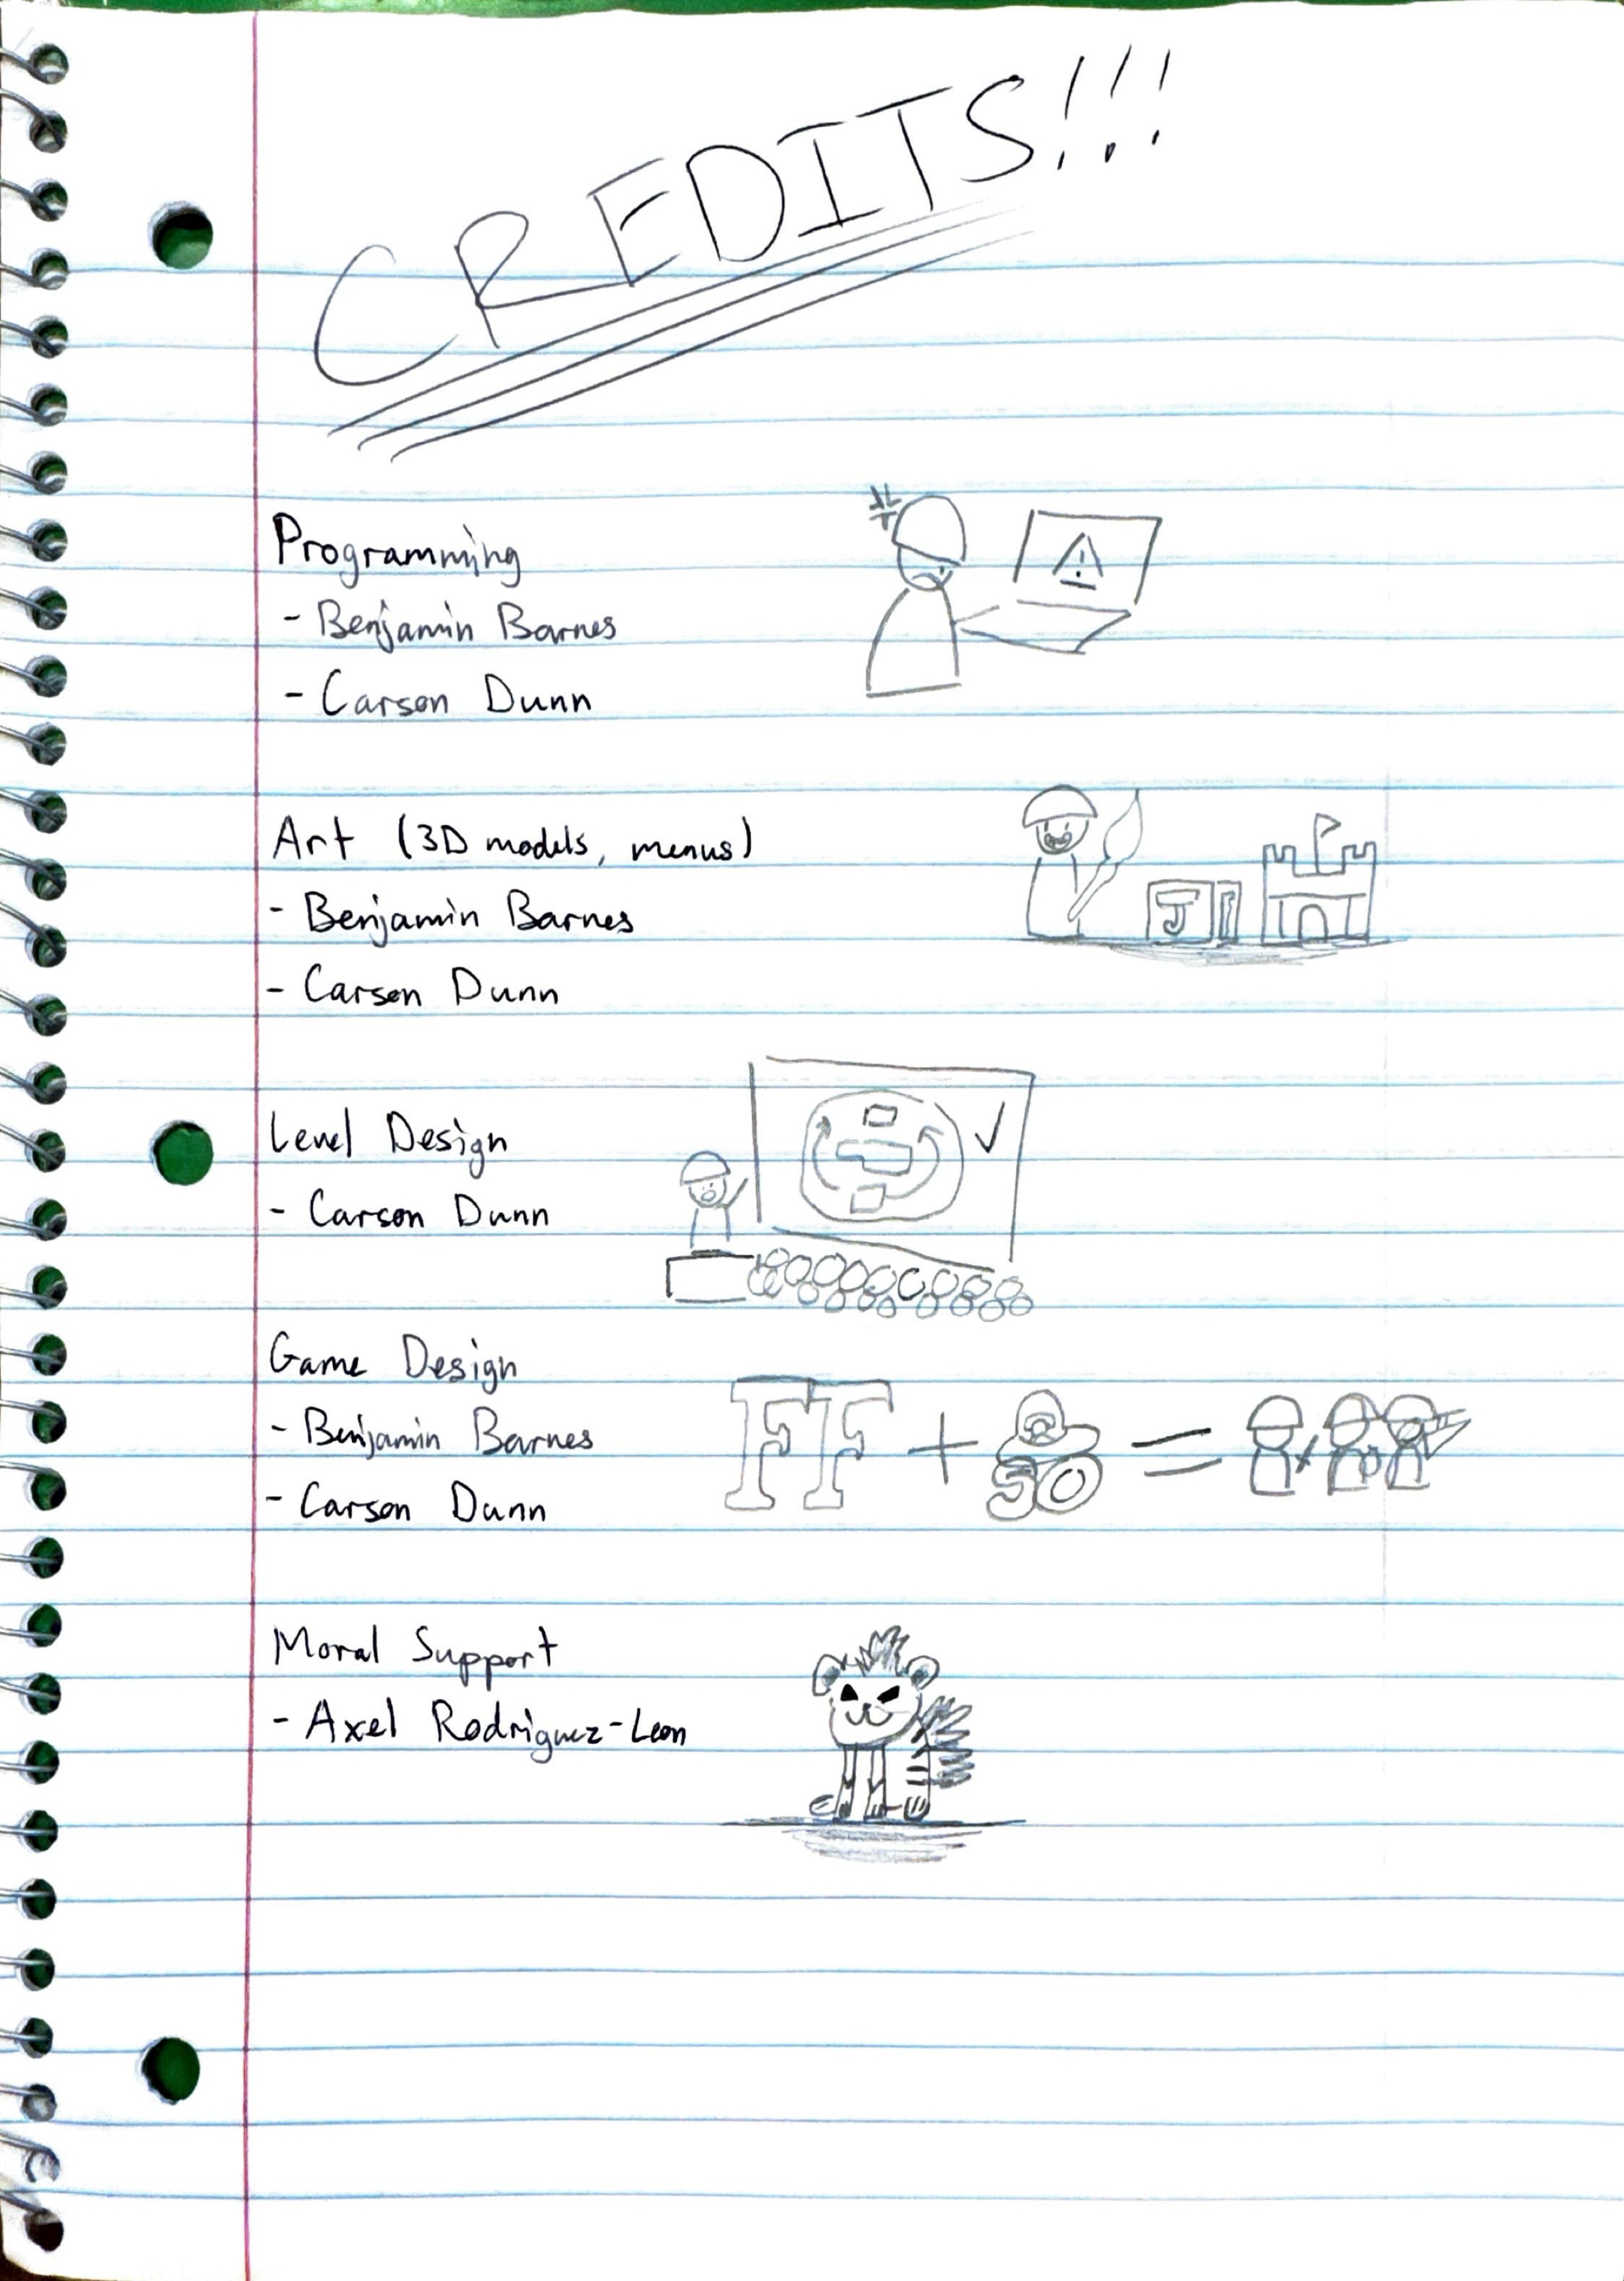 CREDITS!!!
Programming
- Benjamin Barnes
- Carson Dunn
Art (3D models, menus)
- Benjamin Barnes
- Carson Dunn
J
Level Design
- Carson Dunn
Game Design
- Benjamin Barnes
- Carson Dunn
FF + = 
Moral Support
- Axel Rodriguez-Leon